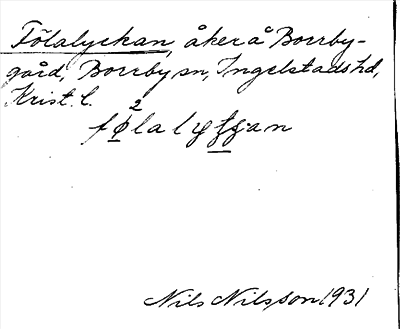 Fölalyckan, åker å Borrby-
gård, Borrby sn, Ingelstads hd,
Krist. l.
2
følalyggan
Nils Nilsson 1931